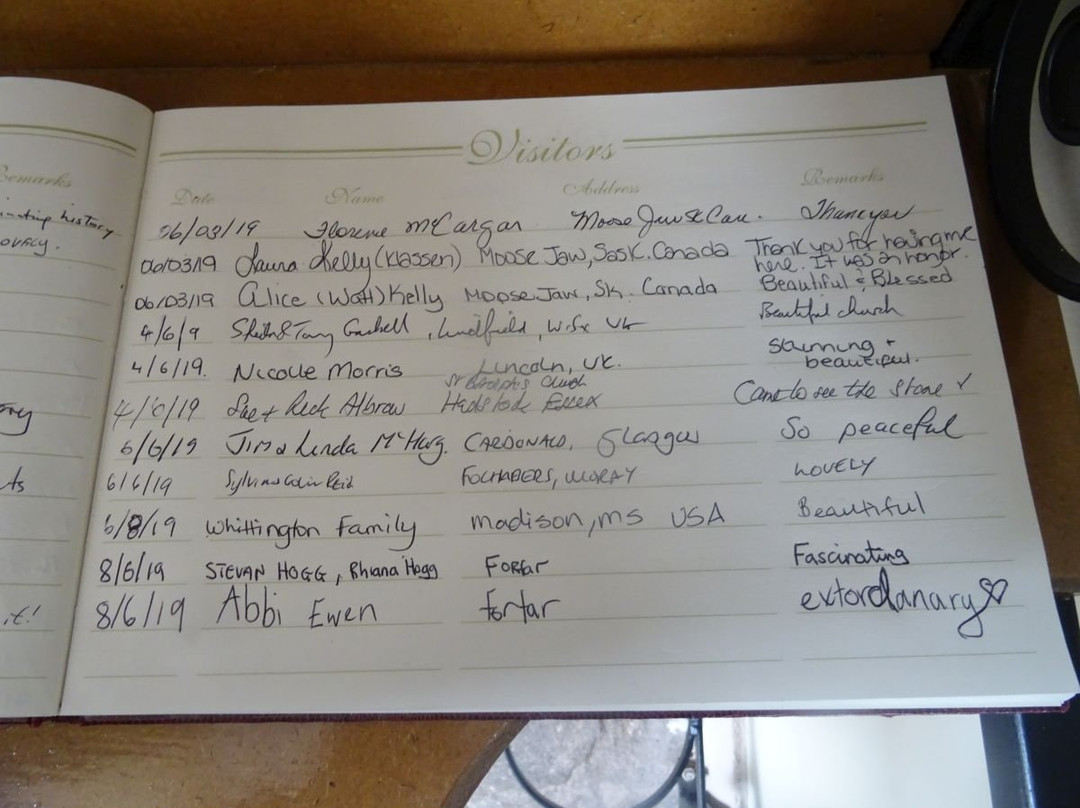 Visitors
Remarks
Date Name Address Remarks
history
06/03/19 Florence McCargar Moose Jaw Sk Can. Thank you
LOVELY.
06/03/19 Laura Kelly (Klassen) Moose Jaw, Sask. Canada Thank you for having me
here. It was an honor.
06/03/19 Alice (Watt) Kelly Moose Jaw, Sk. Canada Beautiful & Blessed
4/6/9 Tony Lindfield, W. Sx UK Beautiful church
4/6/19. Nicolle Morris Lincoln, UK. Stunning +
beautiful.
St Church
4/6/19 Sue & Rick Albrow Essex Came to see the stone ✓
6/6/19 Jim & Linda McHarg. CARDONALD, Glasgow So peaceful
6/6/19 Sylvia & Colin Reid FOCHABERS, MORAY LOVELY
6/8/19 Whittington Family madison, ms USA Beautiful
8/6/19 STEVAN HOGG, Rhiana Hogg Forfar Fascinating
it!
8/6/19 Abbi Ewen forfar extordanary♡